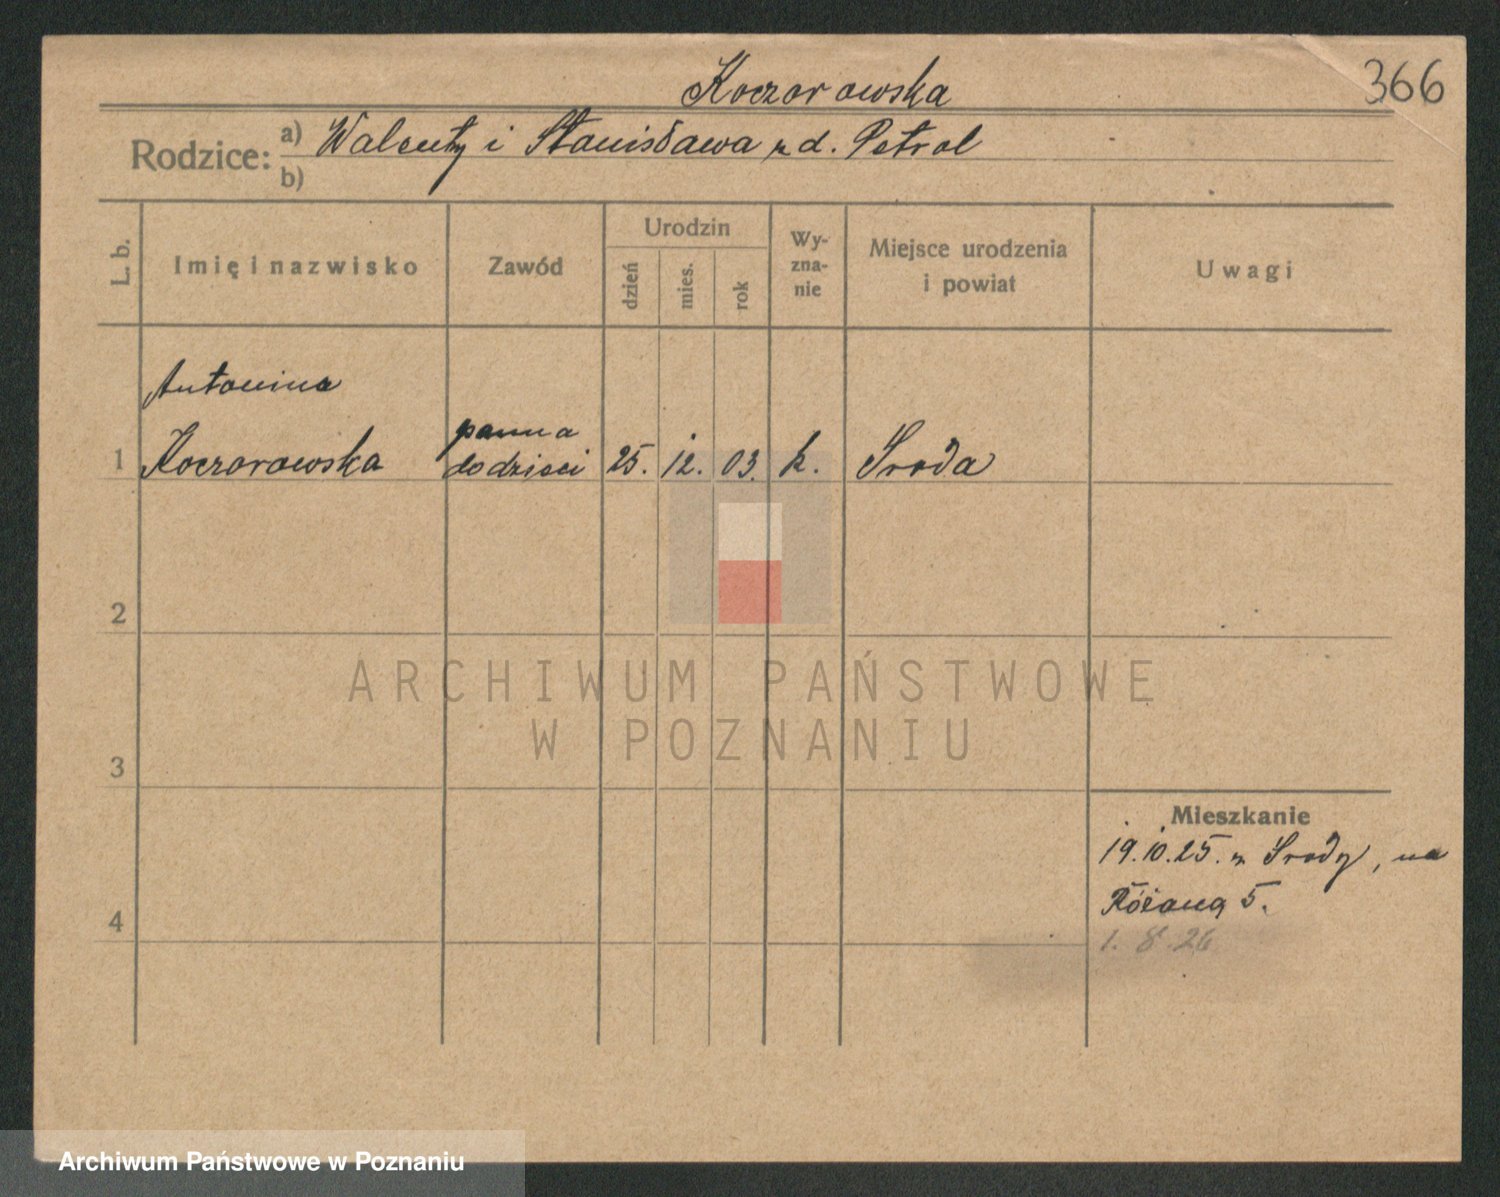 Koczorowska
366
Rodzice:
a) Walenty i Stanisława z d. Petrol
b)
L. b.
Imię i nazwisko
Zawód
Urodzin
dzień
mies.
rok
Wy-
zna-
nie
Miejsce urodzenia
i powiat
Uwagi
Antonina
panna
1 Koczorowska do dzieci 25. 12. 03. k. Środa
2
3
4
ARCHIWUM PAŃSTWOWE
W POZNANIU
Mieszkanie
19.10.25. z Środy, na
Różaną 5.
1. 8. 26
Archiwum Państwowe w Poznaniu